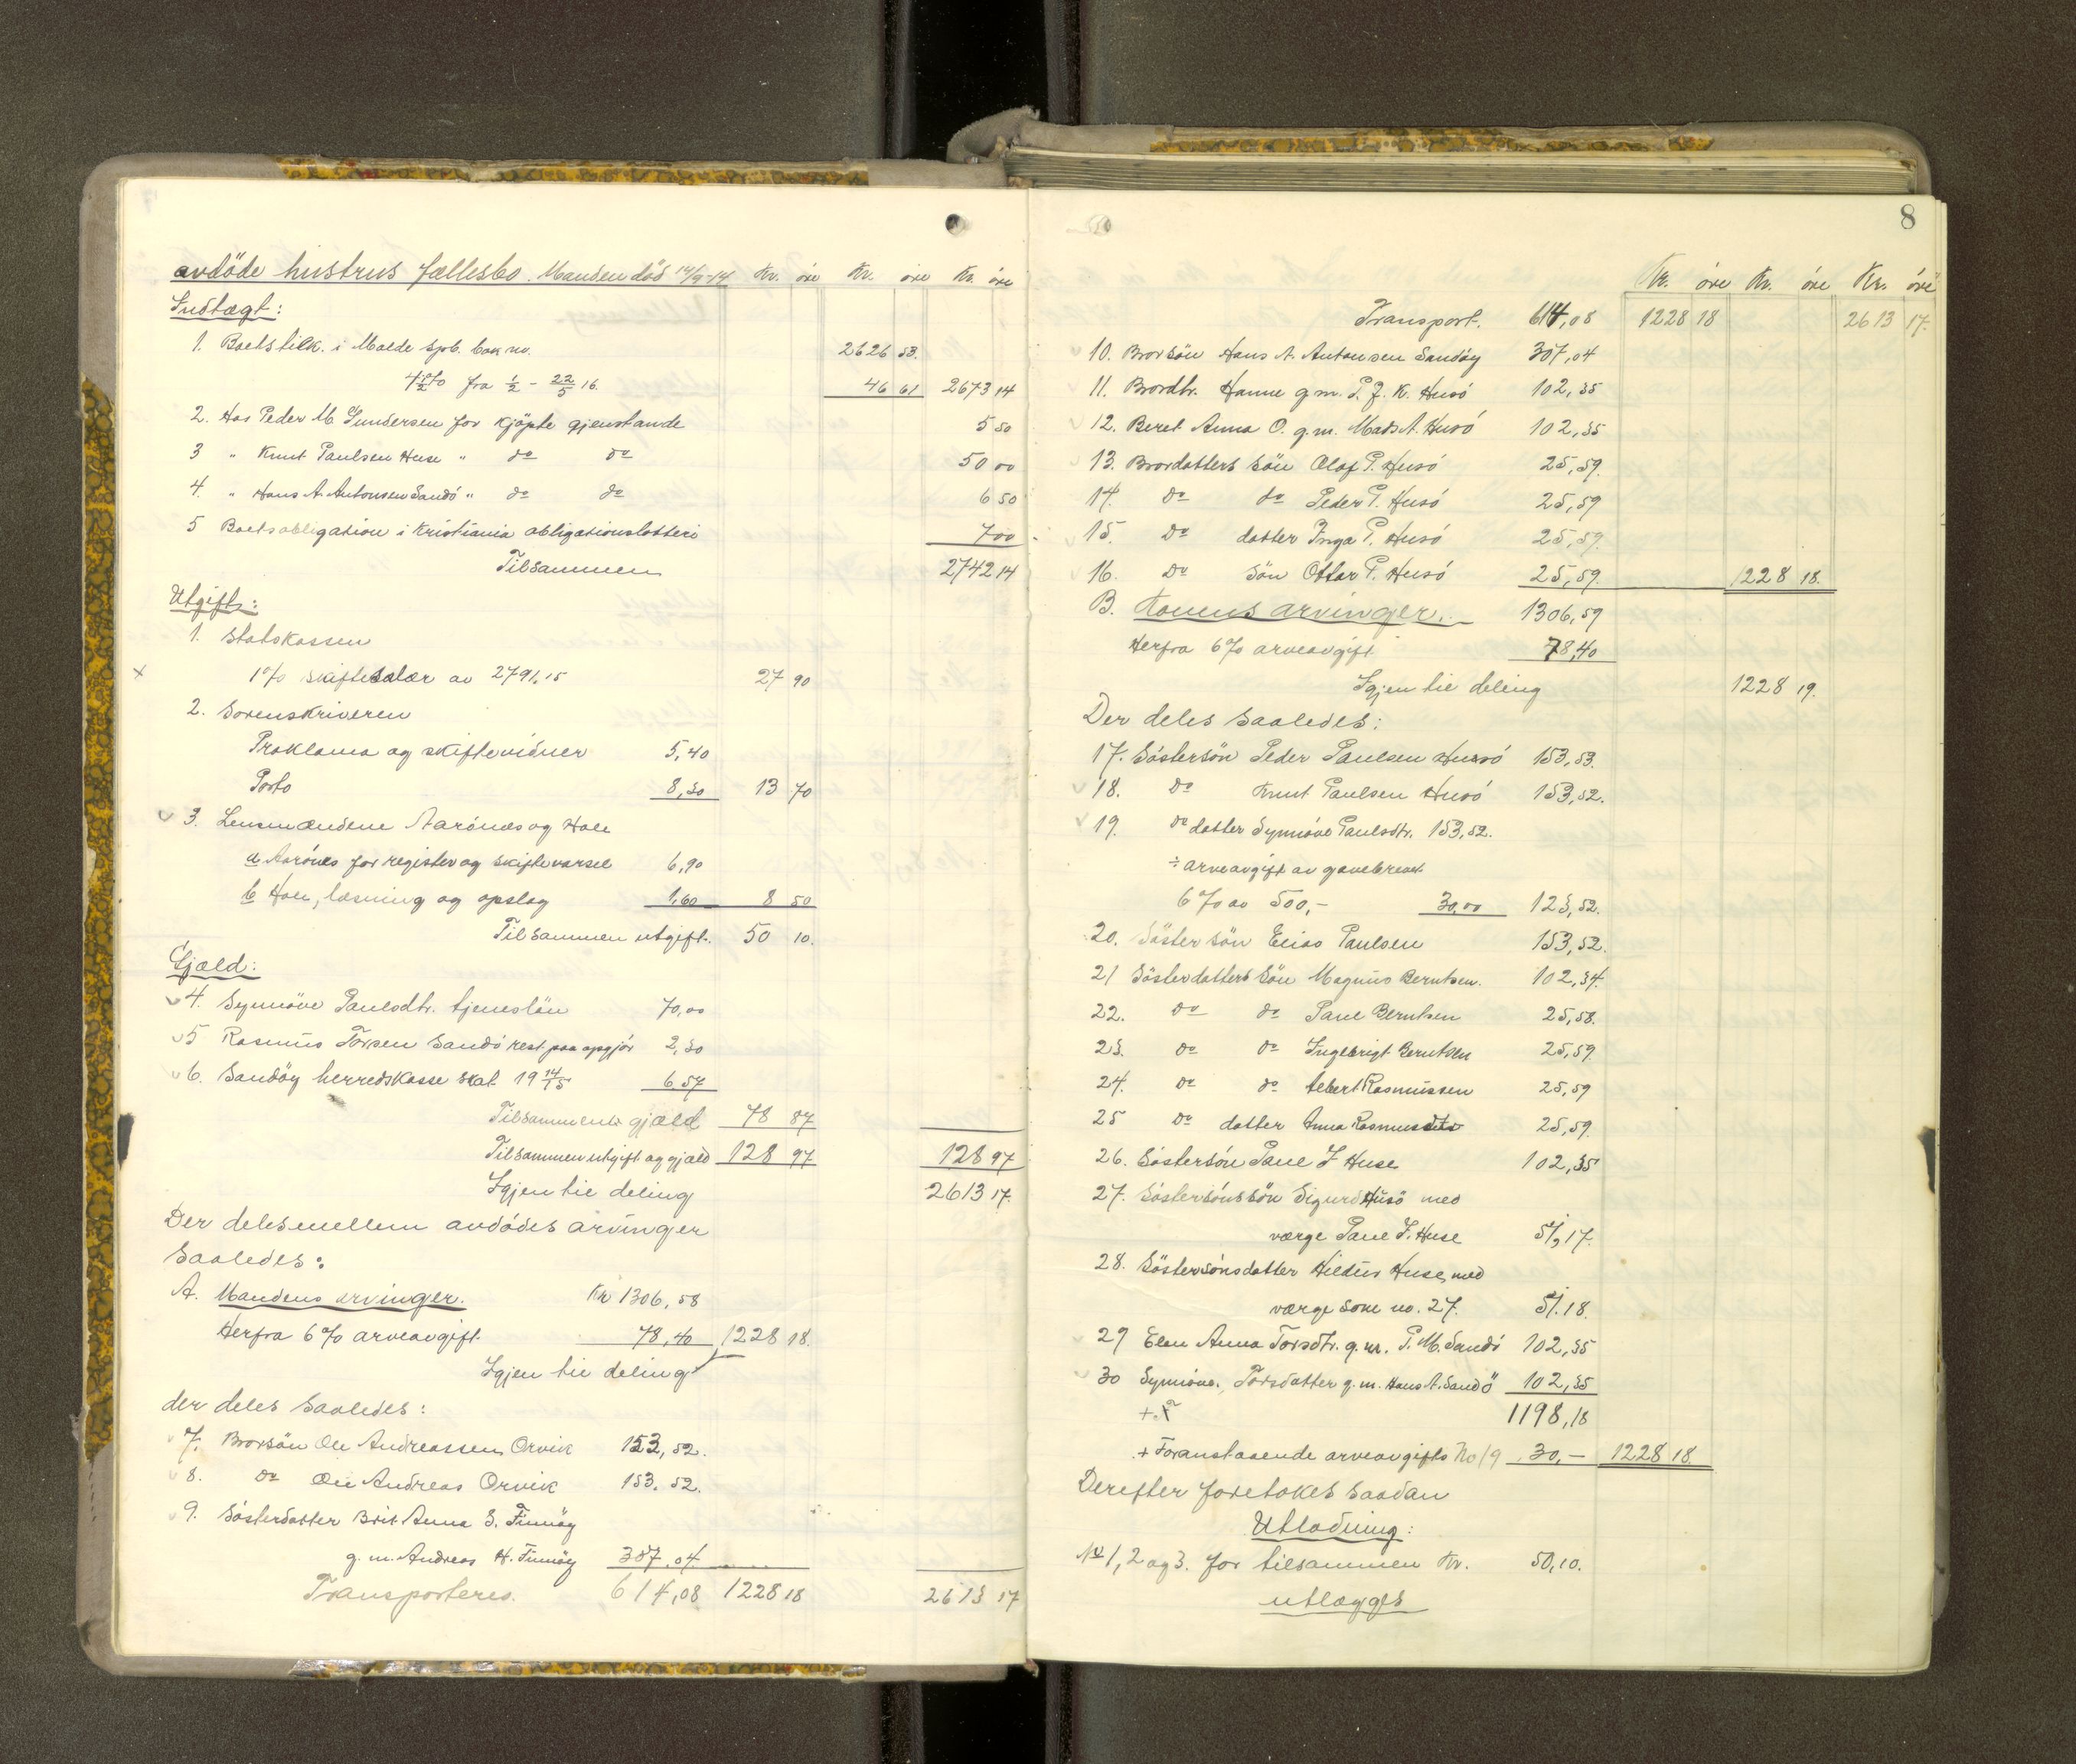 avdöde hustrus fællesbo. Manden död 14/9-14 Kr. öre Kr. öre Kr. öre
Indtægt:
1. Boets tilk. i Molde spb. bok no. 2626 53.
4½% fra ½ - 22/5 16. 46 61 2673 14
2. Hos Peder M. Gundersen for kjöpte gjenstande 5 50
3 " Knut Paulsen Huse " do do 50 00
4. " Hans A. Antonsen Sandö " do do 6 50
5 Boets obligation i Kristiania obligationslotteri 7 00
Tilsammen 2742 14
Utgift:
1. Statskassen
x 1% skiftesalær av 2791.15 27 90
2. Sorenskriveren
Proklama og skiftevidner 5,40
Porto 8,30 13 70
3. Lensmændene Aarönes og Hole
a Aarönes for register og skiftevarsel 6,90
b Hole, læsning og opslag 1,60 8 50
Tilsammen utgift. 50 10.
Gjæld:
4. Synnöve Paulsdtr. tjenestlön 70,00
5 Rasmus Torsen Sandö rest paa opgjör 2,30
6. Sandöy herredskasse skat 19 14/15 6,57
Tilsammen gjæld 78 87
Tilsammen utgift og gjæld 128 97 128 97
Igjen til deling 2613 17.
Der deles mellem avdödes arvinger
saaledes:
A. Mandens arvinger. Kr 1306,58
Herfra 6% arveavgift. 78,40 1228 18.
Igjen til deling
der deles saaledes:
7. Brorsön Ole Andreassen Orvik 153,52.
8. do Ole Andreas Orvik 153.52.
9. Sösterdatter Brit Anna S. Finnöy
g. m. Andreas H. Finnöy 307.04
Transporteres. 614,08 1228 18 2613 17
8
Kr. öre Kr. öre Kr. öre
Transport. 614,08 1228 18 2613 17.
10. Brorsön Hans A. Antonsen Sandöy 307,04
11. Brordtr. Hanne g.m. P. J. K. Husö 102,35
12. Beret Anna O. g.m. Mads A. Husö 102,35
13. Brordatters sön Olaf P. Husö 25,59.
14. do do Peder P. Husö 25,59
15. do datter Inga P. Husö 25,59.
16. do sön Ottar P. Husö 25,59. 1228 18.
B. Konens arvinger. 1306,59
Herfra 6% arveavgift 78,40
Igjen til deling 1228 19.
Der deles saaledes:
17. Söstersön Peder Paulsen Husö 153,53.
18. do Knut Paulsen Husö 153,52.
19. do datter Synnöve Paulsdtr. 153,52.
÷ arveavgift av gavebrevet
6% av 500,- 30,00 123,52.
20. Söstersön Elias Paulsen 153,52.
21 Sösterdatters sön Magnus Berntsen. 102,34.
22. do do Paul Berntsen 25,58.
23. do do Ingebrigt Berntsen 25,59.
24. do do Elbert Rasmussen 25,59
25 do datter Anna Rasmusdtr 25,59.
26. Söstersön Paul J Huse 102,35
27. Söstersöns sön Sigurd Husö med
værge Paul J. Huse 51,17.
28. Söstersönsdatter Hildur Huse, med
værge som no. 27. 51.18
29 Elen Anna Torsdtr. g. m. P. M. Sandö 102,35
30 Synnöve Torsdatter g. m. Hans A. Sandö 102,35
1198,18
+ Foranstaaende arveavgift No 19 30,- 1228 18.
Derefter foretokes saadan
Utlodning:
No 1, 2 og 3. for tilsammen Kr. 50,10.
utlægges